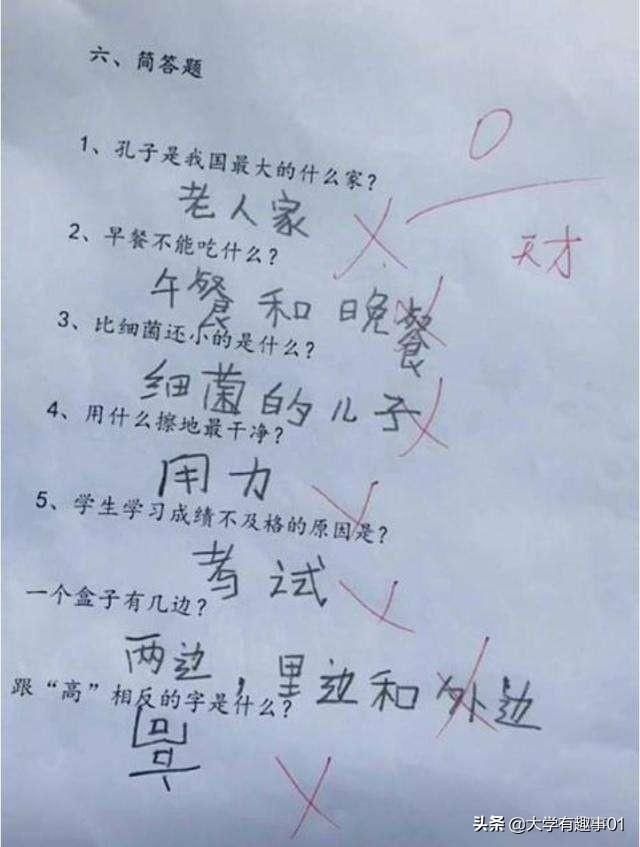 六、简答题
0
1、孔子是我国最大的什么家?
天才
老人家
2、早餐不能吃什么?
午餐 和 晚餐
3、比细菌还小的是什么?
细菌的儿子
4、用什么擦地最干净?
用力
5、学生学习成绩不及格的原因是?
考试
一个盒子有几边?
两边,里边和外边
跟“高”相反的字是什么?
头条 @大学有趣事01